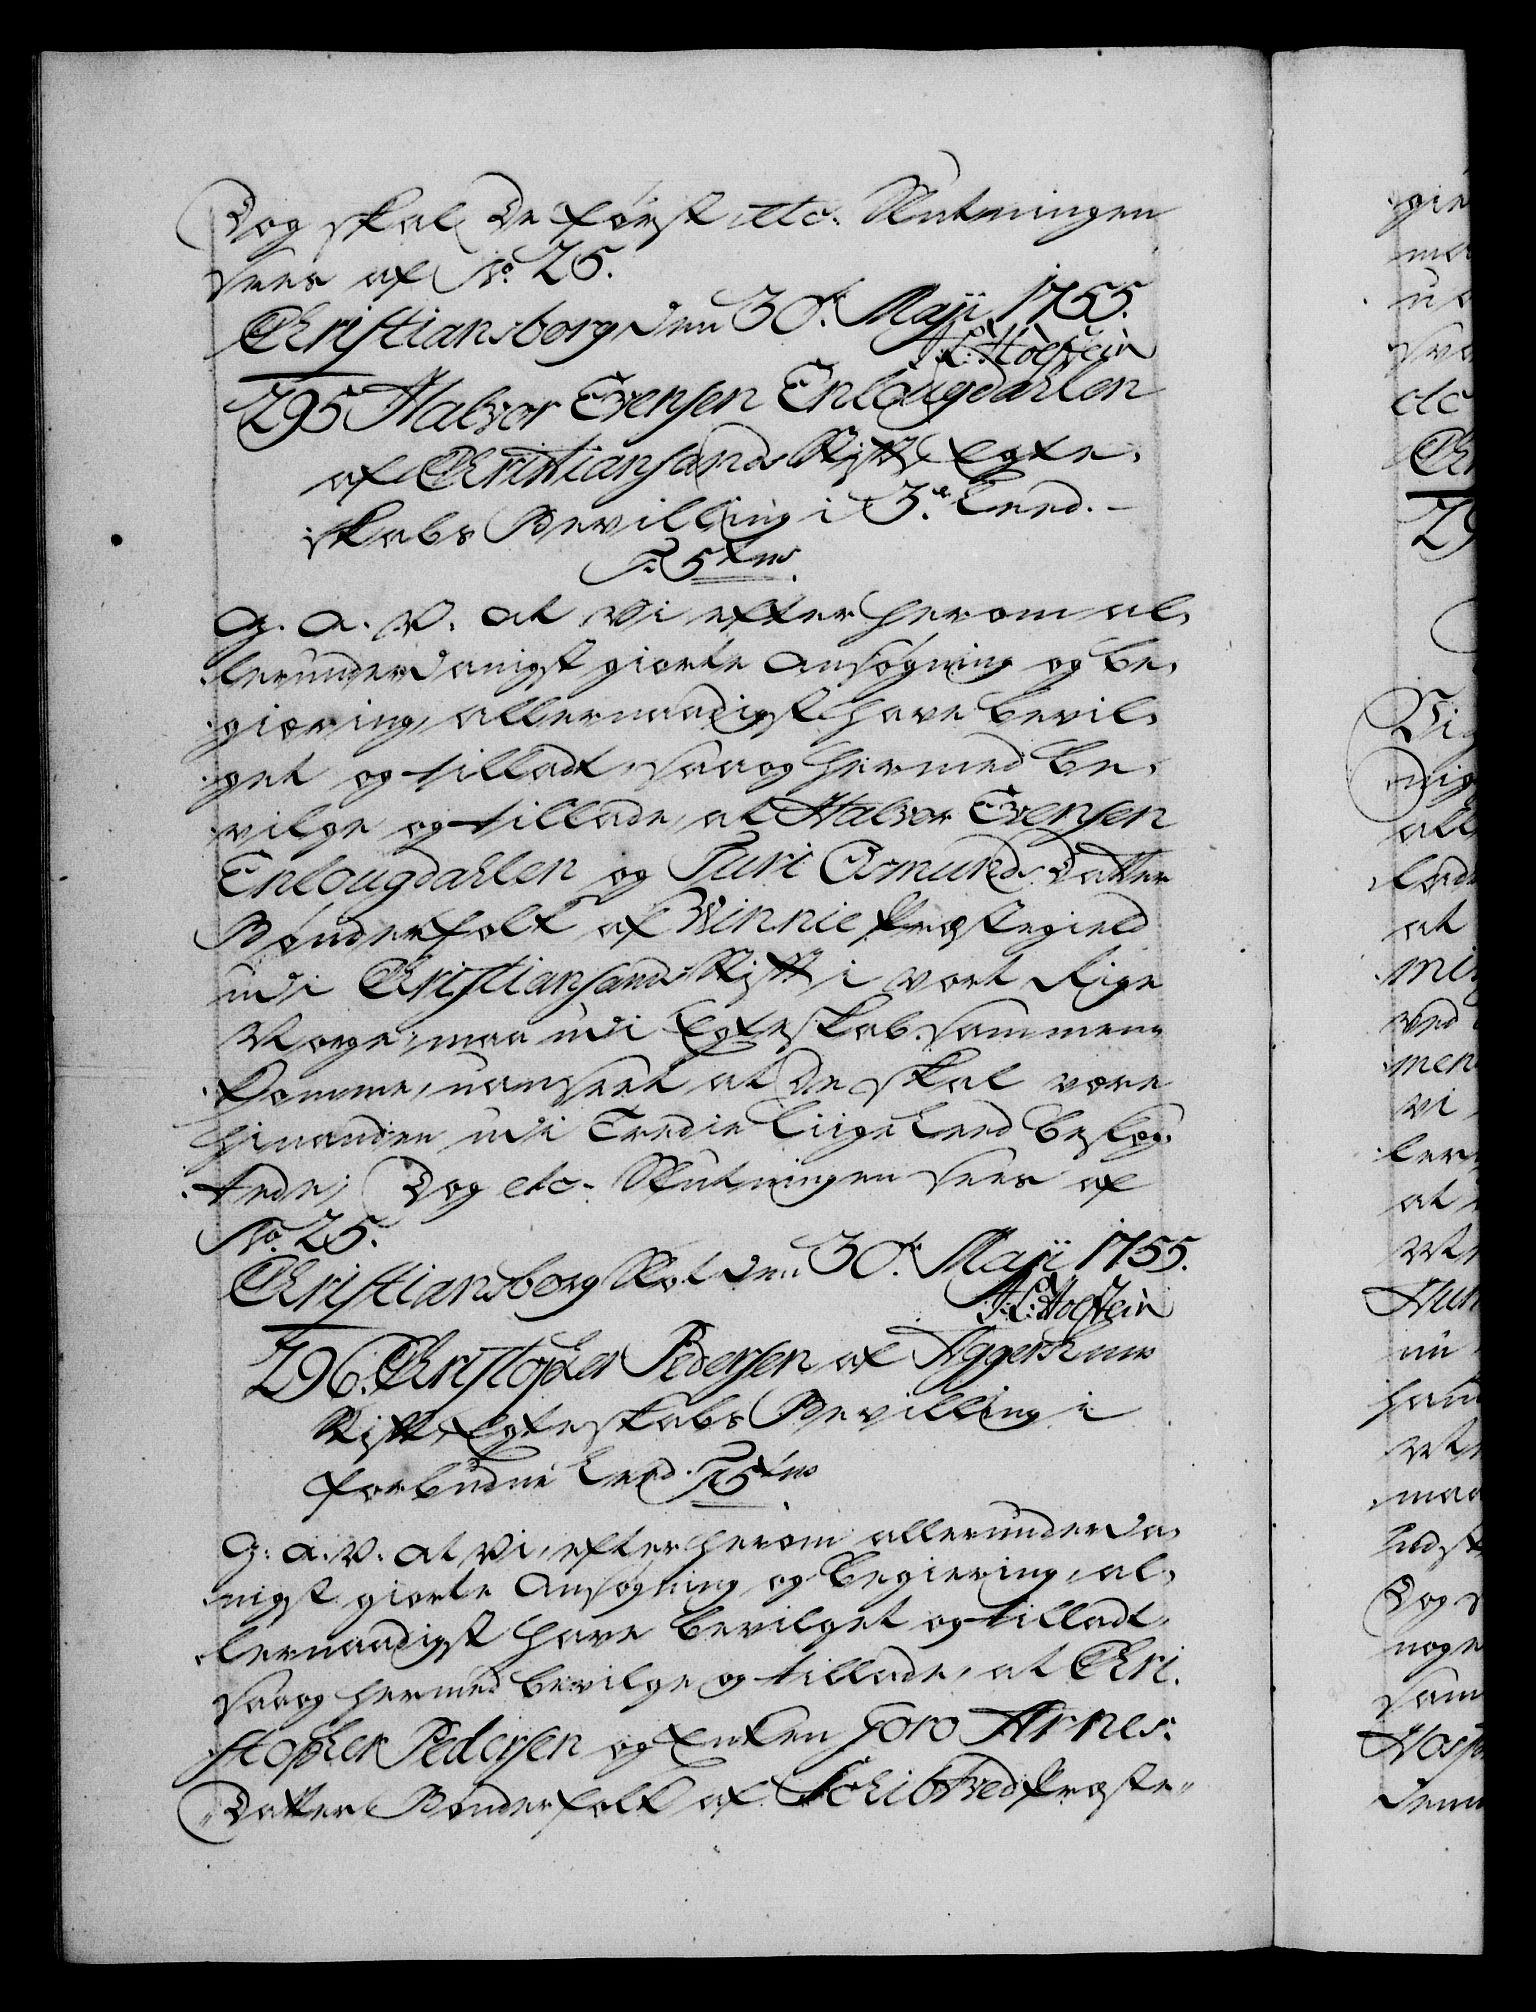 Dog skal De først etc. Slutningen
sees af No. 25.
Christiansborg den 30te Maji 1755.
J. L. Holstein
295 Halvor Evensen Enlougdahlen
af Christiansands Stift, Egte-
skabs Bevilling i 3die Leed.
G. A. V. at Vi efter herom al-
lerunderdanigst giorte Ansøgning og be-
giæring, allernaadigst have bevil-
get og tilladt, saa og hermed be-
vilge og tillade, at Halvor Evensen
Enlougdahlen og Turi Osmunds Datter
Bønderfolk af Winnie Præstegield
udi Christiansands Stift i vort Rige
Norge, maa udi Egteskab sammen-
komme, uanseet at De skal være
hinanden udi Tredie Liige Leed beslæg-
tede; Dog etc. Slutningen sees af
No. 25.
Christiansborg Slot den 30te Maji 1755.
J. L. Holstein
296. Christopher Pedersen af Aggershuus
Stift, Egteskabs Bevilling i
forbudne Leed.
G: A. V. at Vi, efter herom allerunderda-
nigst giorte Ansøgning og Begiering, al-
lernaadigst have bevilget og tilladt,
saa og hermed bevilge og tillade, at Chri-
stopher Pedersen og Enken Goro Arnes-
Datter Bønderfolk af Schibtved Præste-